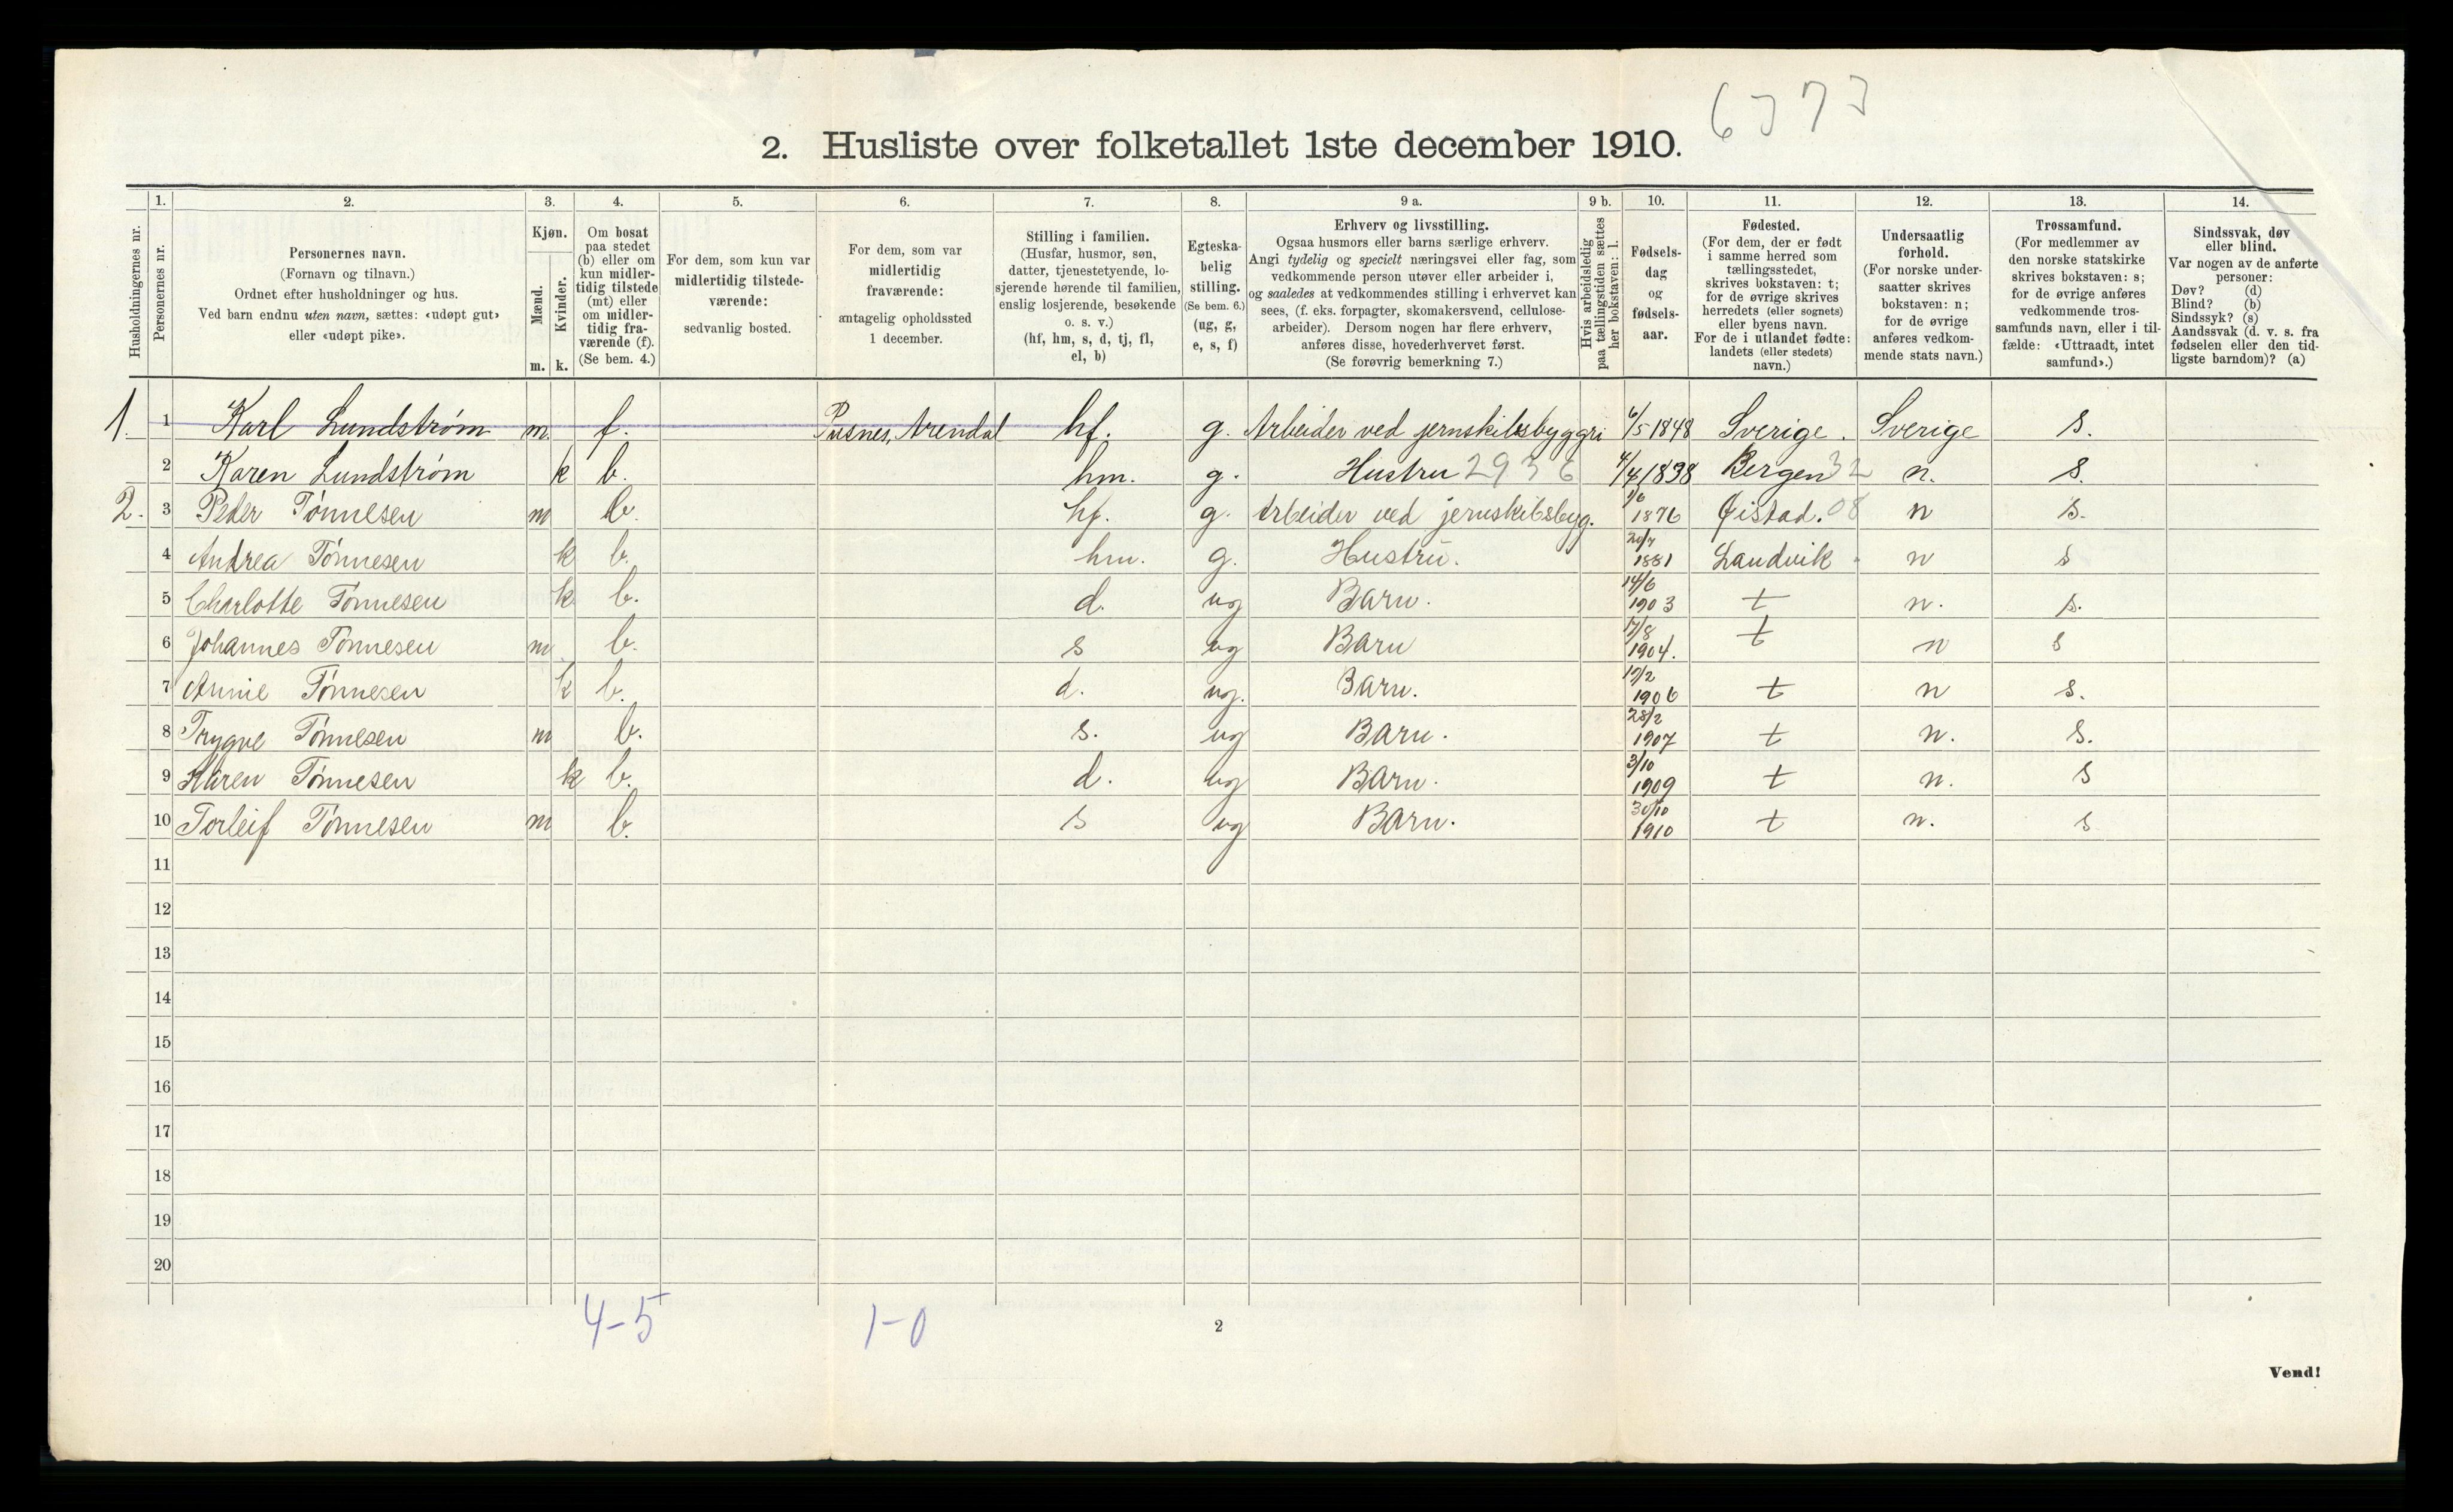 6373
2. Husliste over folketallet 1ste december 1910.
Husholdningernes nr.
1.
Personernes nr.
2.
Personernes navn.
(Fornavn og tilnavn.)
Ordnet efter husholdninger og hus.
Ved barn endnu uten navn, sættes: «udøpt gut»
eller «udøpt pike».
3.
Kjøn.
Mænd.
Kvinder.
m. k.
4.
Om bosat
paa stedet
(b) eller om
kun midler-
tidig tilstede
(mt) eller
om midler-
tidig fra-
værende (f).
(Se bem. 4.)
5.
For dem, som kun var
midlertidig tilstede-
værende:
sedvanlig bosted.
6.
For dem, som var
midlertidig
fraværende:
antagelig opholdssted
1 december.
7.
Stilling i familien.
(Husfar, husmor, søn,
datter, tjenestetyende, lo-
sjerende hørende til familien,
enslig losjerende, besøkende
o. s. v.)
(hf, hm, s, d, tj, fl,
el, b)
8.
Egteska-
belig
stilling.
(Se bem. 6.)
(ug, g,
e, s, f)
9 a.
Erhverv og livsstilling.
Ogsaa husmors eller barns særlige erhverv.
Angi tydelig og specielt næringsvei eller fag, som
vedkommende person utøver eller arbeider i,
og saaledes at vedkommendes stilling i erhvervet kan
sees, (f. eks. forpagter, skomakersvend, cellulose-
arbeider). Dersom nogen har flere erhverv,
anføres disse, hovederhvervet først.
(Se forøvrig bemerkning 7.)
9 b.
Hvis arbeidsledig
paa tællingstiden sættes
her bokstaven: l.
10.
Fødsels-
dag
og
fødsels-
aar.
11.
Fødested.
(For dem, der er født
i samme herred som
tællingsstedet,
skrives bokstaven: t;
for de øvrige skrives
herredets (eller sognets)
eller byens navn.
For de i utlandet fødte:
landets (eller stedets)
navn.)
12.
Undersaatlig
forhold.
(For norske under-
saatter skrives
bokstaven: n;
for de øvrige
anføres vedkom-
mende stats navn.)
13.
Trossamfund.
(For medlemmer av
den norske statskirke
skrives bokstaven: s;
for de øvrige anføres
vedkommende tros-
samfunds navn, eller i til-
fælde: «Uttraadt, intet
samfund».)
14.
Sindssvak, døv
eller blind.
Var nogen av de anførte
personer:
Døv? (d)
Blind? (b)
Sindssyk? (s)
Aandssvak (d. v. s. fra
fødselen eller den tid-
ligste barndom)? (a)
1. 1 Karl Lundstrøm m. f. Pusnes, Arendal hf. g. Arbeider ved jernskibsbyggri 6/5 1848 Sverige. Sverige s.
2 Karen Lundstrøm k b. hm. g. Hustru 2936 4/4 1838 Bergen 32 n. s.
2. 3 Peder Tønnesen m b. hf. g. Arbeider ved jernskibsbyg. 1/6 1876 Øistad. 08 n s.
4 Andrea Tønnesen k b. hm. g. Hustru. 20/7 1881 Landvik n s
5 Charlotte Tønnesen k b. d. ug Barn. 14/6 1903 t n. s.
6 Johannes Tønnesen m b. s ug Barn 17/8 1904. t n s
7 Annie Tønnesen k b. d. ug. Barn. 19/2 1906 t n s.
8 Trygve Tønnesen m b. s. ug Barn. 28/2 1907 t n. s.
9 Karen Tønnesen k b. d. ug Barn. 3/10 1909 t n. s
10 Torleif Tønnesen m b. s ug Barn. 30/10 1910 t n. s
11
12
13
14
15
16
17
18
19
20
4-5 1-0
2
Vend!